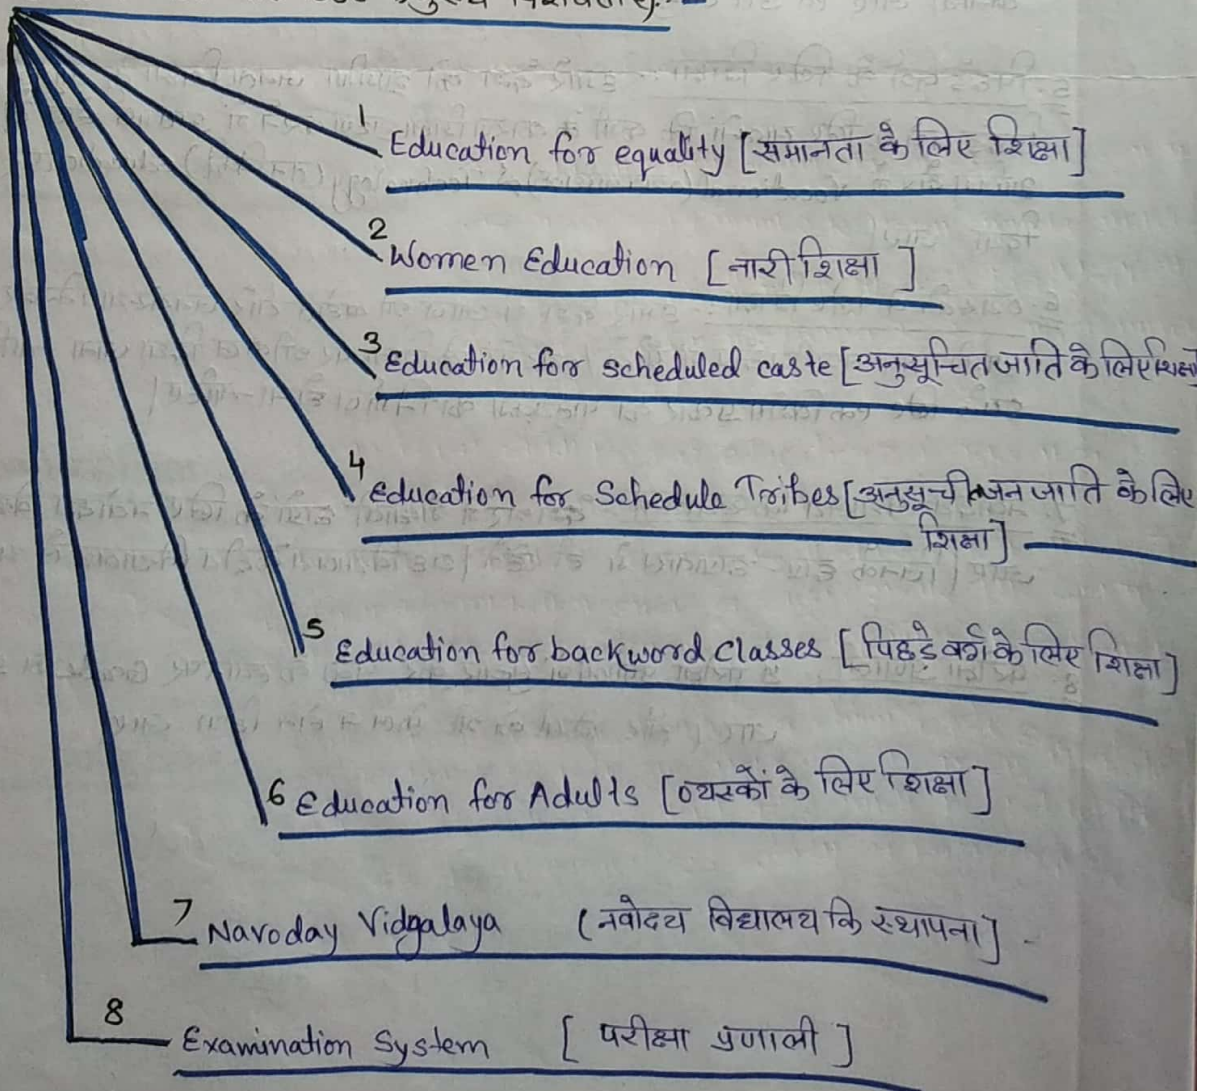 1 Education for equality [समानता के लिए शिक्षा]
2 Women Education [नारी शिक्षा ]
3 Education for scheduled caste [अनुसूचित जाति के लिए शिक्षा
4 Education for Schedule Tribes [अनुसूचीत जन जाति के लिए
शिक्षा]
5 Education for backword classes [पिछड़े वर्ग के लिए शिक्षा]
6 Education for Adults [व्यस्कों के लिए शिक्षा]
7 Navoday Vidyalaya (नवोदय विद्यालय कि स्थापना]
8 Examination System [ परीक्षा प्रणाली ]